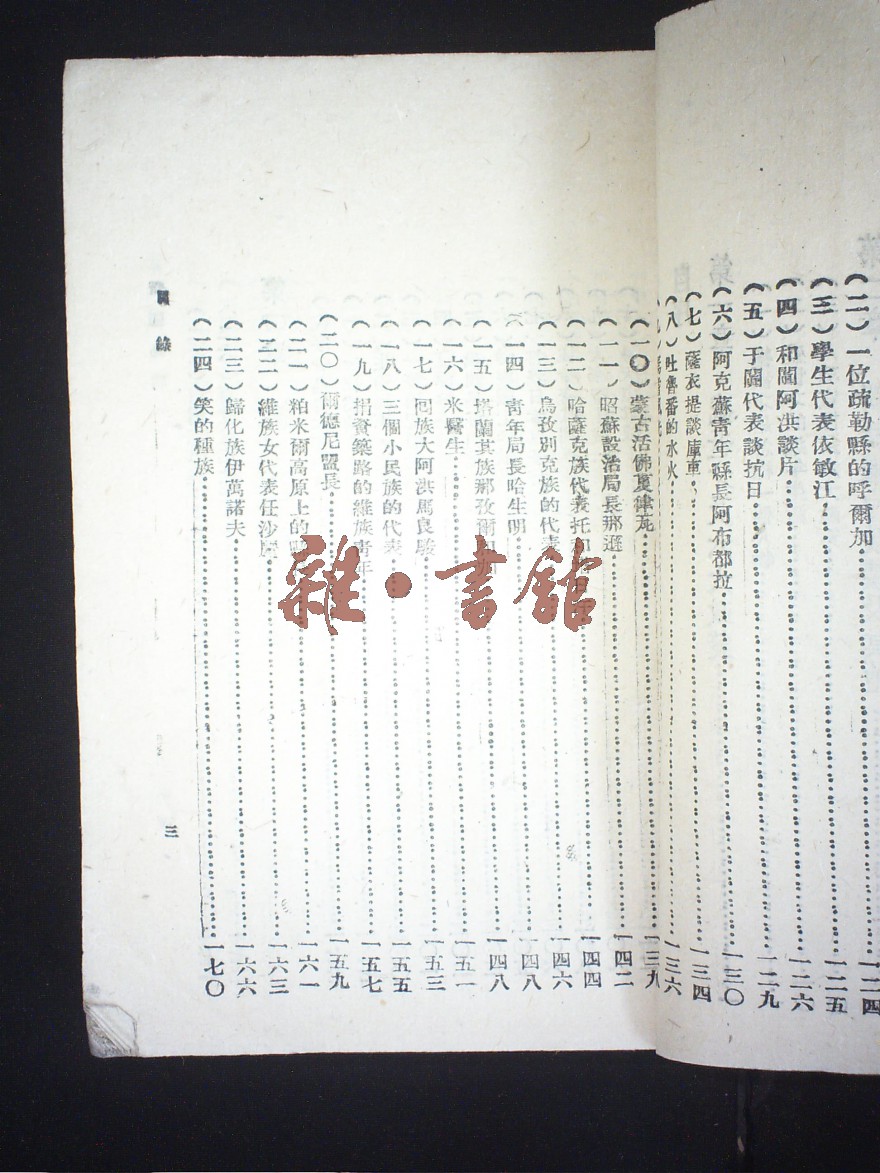 (二)一位疏勒縣的呼爾加 一二四
(三)學生代表依敏江 一二五
(四)和闐阿洪談片 一二六
(五)于闐代表談抗日 一二九
(六)阿克蘇青年縣長阿布都拉 一三〇
(七)薩衣提談庫車 一三四
(八)吐魯番的水火 一三六
(一〇)蒙古活佛夏律瓦 一三九
(一一)昭蘇設治局長那遜 一四二
(一二)哈薩克族代表托 一四四
(一三)烏孜別克族的代表 一四六
(一四)青年局長哈生明 一四八
(一五)塔蘭其族那孜爾 一四八
(一六)米醫生 一五一
(一七)回族大阿洪馬良駿 一五三
(一八)三個小民族的代表 一五五
(一九)捐資築路的維族青年 一五七
(二〇)爾德尼盟長 一五九
(二一)粕米爾高原上的 一六一
(二二)維族女代表任沙 一六三
(二三)歸化族伊萬諾夫 一六六
(二四)笑的種族 一七〇
目錄
三
雜·書館